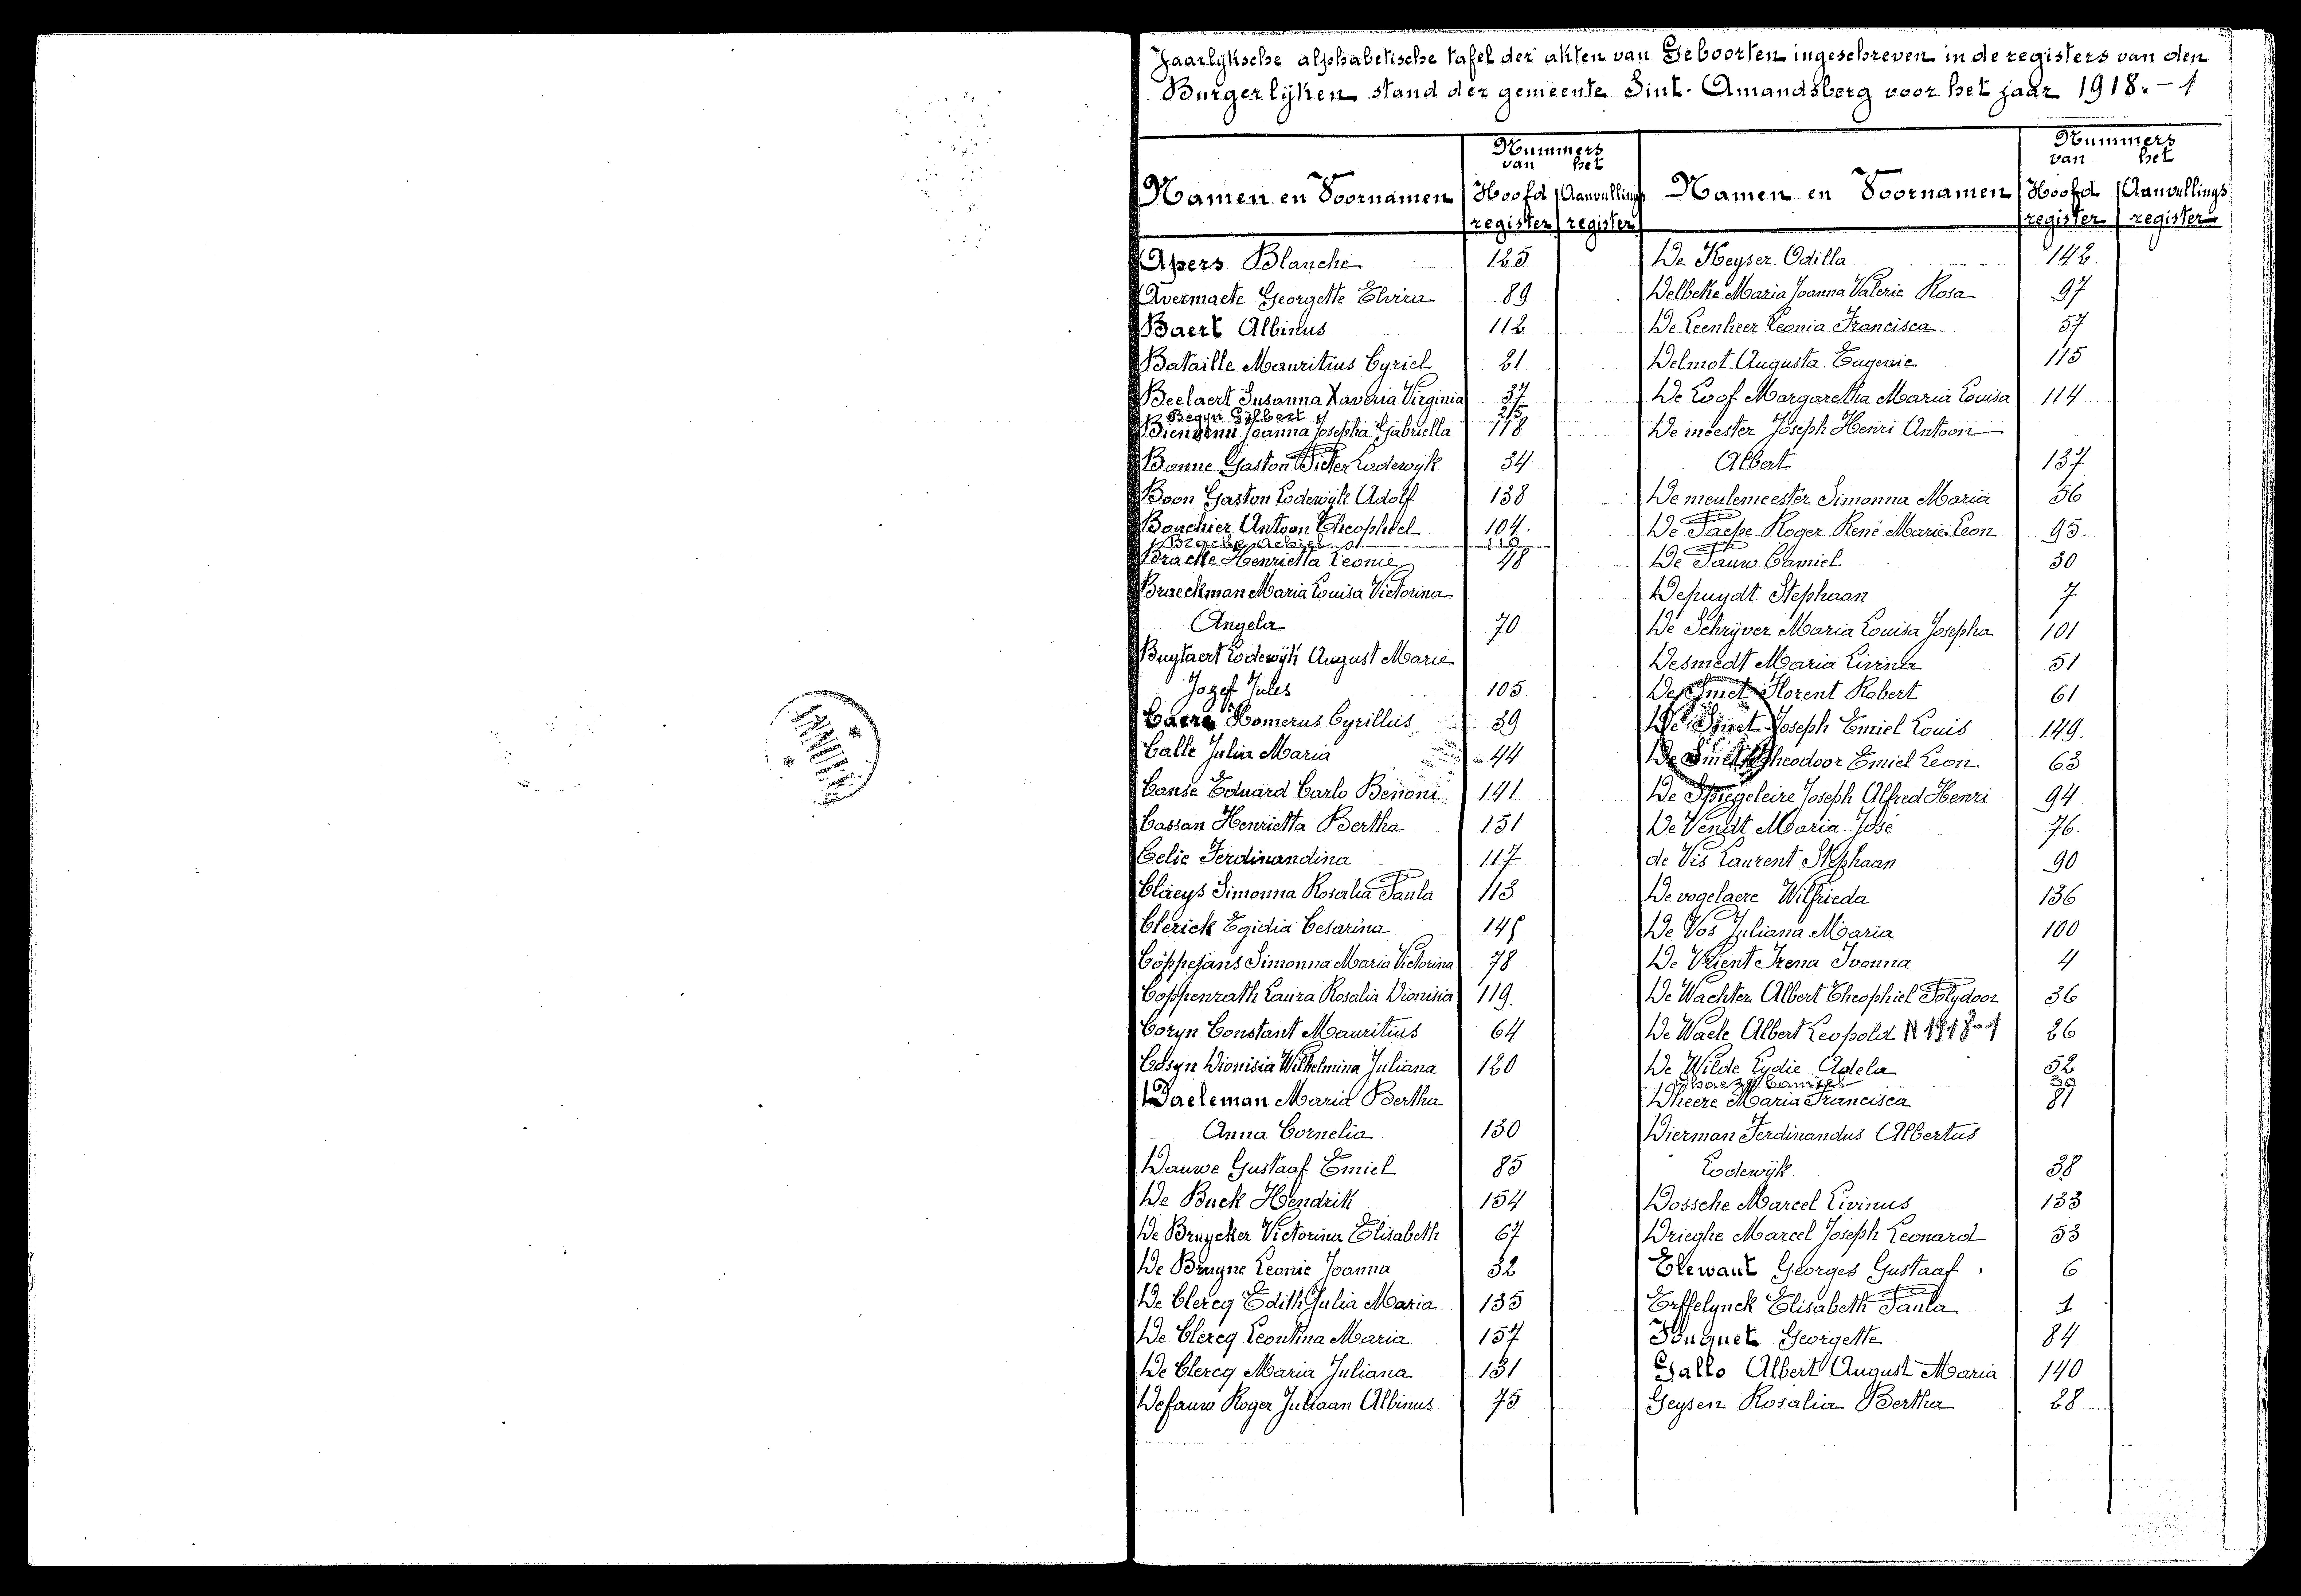 Jaarlijksche alphabetische tafel der akten van Geboorten ingeschreven in de registers van den
Burgerlijken stand der gemeente Sint-Amandsberg voor het jaar 1918.-1
Namen en Voornamen
Nummers
van het
Hoofd Aanvullings
register register
Apers Blanche 125
Avermaete Georgette Elvira 89
Baert Albinus 112
Bataille Mauritius Cyriel 21
Beelaert Susanna Xaveria Virginia 37
Begyn Gilbert 215
Bienvenu Joanna Josepha Gabriella 118
Bonne Gaston Pieter Lodewijk 34
Boon Gaston Lodewijk Adolf 138
Bouchier Antoon Theophiel 104.
Bracke Achiel 110
Bracke Henrietta Leonie 48
Braeckman Maria Louisa Victorina
Angela 70
Buytaert Lodewijk August Marie
Jozef Jules 105.
Caere Homerus Cyrillus 39
Calle Julia Maria 44
Canse Eduard Carlo Benoni 141
Cassan Henrietta Bertha 151
Celie Ferdinandina 117
Claeys Simonna Rosalia Paula 113
Clerick Egidia Cesarina 145
Coppejans Simonna Maria Victorina 78
Coppenrath Laura Rosalia Dionisia 119.
Coryn Constant Mauritius 64
Cosyn Dionisia Wilhelmina Juliana 120
Daeleman Maria Bertha
Anna Cornelia 130
Dauwe Gustaaf Emiel 85
De Buck Hendrik 154
De Bruycker Victorina Elisabeth 67
De Bruyne Leonie Joanna 32
De Clercq Edith Julia Maria 135
De Clercq Leontina Maria 157
De Clercq Maria Juliana 131
Defauw Roger Juliaan Albinus 75
Namen en Voornamen
Nummers
van het
Hoofd Aanvullings
register register
De Keyser Odilla 142.
Delbeke Maria Joanna Valerie Rosa 97
De Leenheer Leonia Francisca 57
Delmot Augusta Eugenie 115
De Loof Margaretha Maria Louisa 114
De meester Joseph Henri Antoon
Albert 137
De meulemeester Simonna Maria 56
De Paepe Roger René Marie Leon 95.
De Pauw Camiel 30
Depuydt Stephaan 7
De Schrijver Maria Louisa Josepha 101
Desmedt Maria Livina 51
De Smet Florent Robert 61
De Smet Joseph Emiel Louis 149.
De Smet Theodoor Emiel Leon 63
De Spiegeleire Joseph Alfred Henri 94
De Vendt Maria José 76.
de Vis Laurent Stephaan 90
De vogelaere Wilfrieda 136
De Vos Juliana Maria 100
De Vrient Irena Ivonna 4
De Wachter Albert Theophiel Polydoor 36
De Waele Albert Leopold N 1918-1 26
De Wilde Lydie Adela 52
Dhaeze Camiel 39
Dheere Maria Francisca 81
Dierman Ferdinandus Albertus
Lodewijk 38
Dossche Marcel Livinus 133
Drieghe Marcel Joseph Leonard 53
Elewaut Georges Gustaaf 6
Erffelynck Elisabeth Paula 1
Fouquet Georgette 84
Gallo Albert August Maria 140
Geysen Rosalia Bertha 28